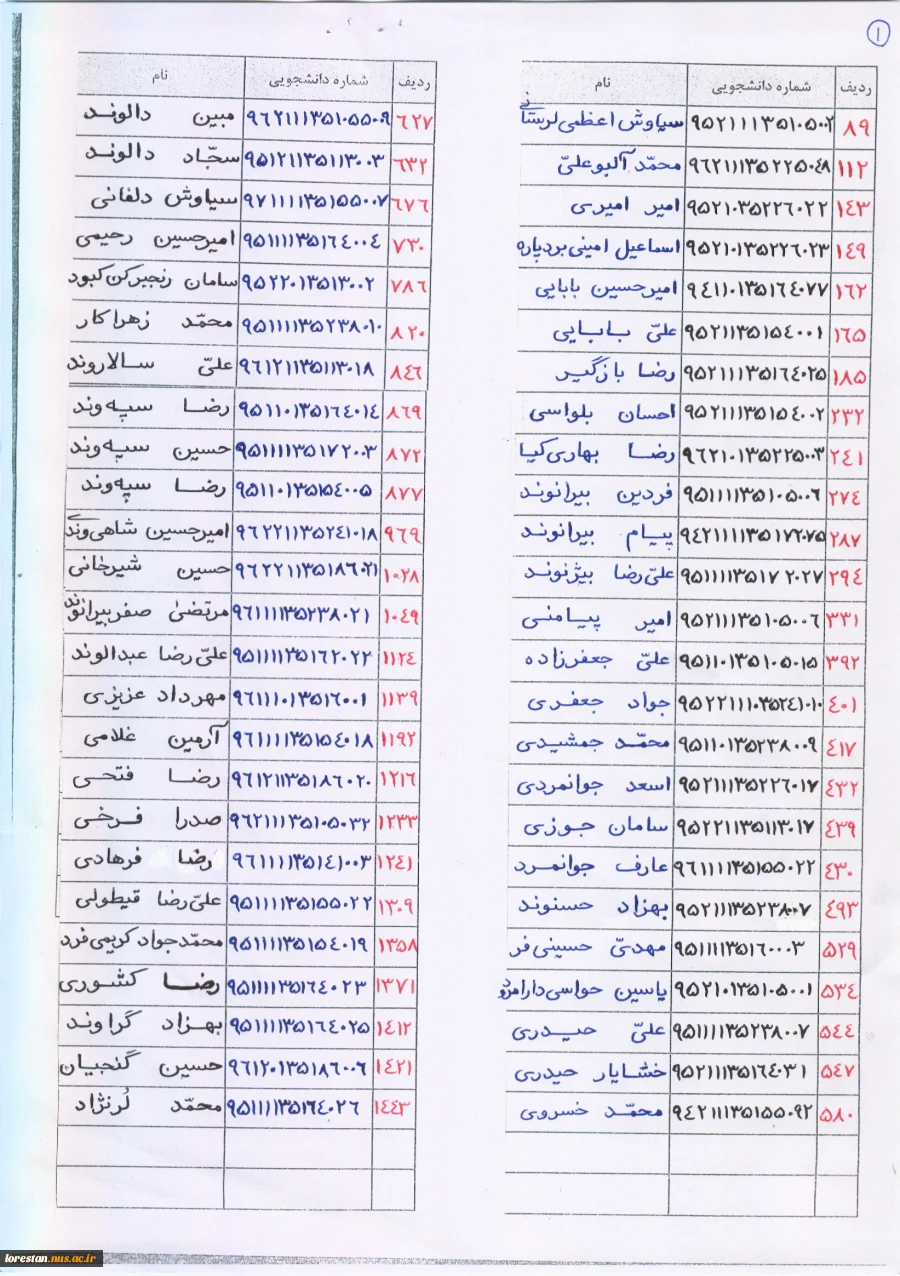 ۱
ردیف شماره دانشجویی نام
۸۹ ۹۵۲۱۱۱۳۵۱۰۵۰۰۲ سیاوش اعظمی لرستانی
۱۱۲ ۹۶۲۱۱۱۳۵۲۲۵۰۴۸ محمّد آلبوعلیّ
۱۴۳ ۹۵۲۱۰۳۵۲۲۶۰۲۲ امیر امیری
۱۴۹ ۹۵۲۱۰۱۳۵۲۲۶۰۲۳ اسماعیل امینی بردپاره
۱۶۲ ۹۴۱۱۰۱۳۵۱۶۴۰۷۷ امیرحسین بابایی
۱۶۵ ۹۵۲۱۱۳۵۱۵۴۰۰۱ علیّ بابایی
۱۸۵ ۹۵۲۱۱۱۳۵۱۶۴۰۲۵ رضا بازگیر
۲۳۲ ۹۵۲۱۱۱۳۵۱۵۴۰۰۲ احسان بلواسی
۲۴۱ ۹۶۲۱۰۱۳۵۲۲۵۰۰۳ رضا بهاری کیا
۲۷۴ ۹۵۱۱۱۱۳۵۱۰۵۰۰۶ فردین بیرانوند
۲۸۷ ۹۴۲۱۱۱۱۳۵۱۷۲۰۷۵ پیام بیرانوند
۲۹۴ ۹۵۱۱۱۱۳۵۱۷۲۰۲۷ علیّ رضا بیژنوند
۳۳۱ ۹۵۲۱۱۱۳۵۱۰۵۰۰۶ امیر پیامنی
۳۹۲ ۹۵۱۱۰۱۳۵۱۰۵۰۱۵ علیّ جعفرزاده
۴۰۱ ۹۵۲۲۱۱۱۰۳۵۲۴۱۰۱۰ جواد جعفری
۴۱۷ ۹۵۱۱۰۱۳۵۲۳۸۰۰۹ محمّد جمشیدی
۴۳۲ ۹۵۲۱۱۱۳۵۲۲۶۰۱۷ اسعد جوانمردی
۴۳۹ ۹۵۲۲۱۱۳۵۱۱۳۰۱۷ سامان جوزی
۴۳۰ ۹۶۱۱۱۱۳۵۱۵۵۰۲۲ عارف جوانمرد
۴۹۳ ۹۵۲۱۱۱۳۵۲۳۸۰۰۷ بهزاد حسنوند
۵۲۹ ۹۵۱۱۱۱۳۵۱۶۰۰۰۳ مهدیّ حسینی فر
۵۳۴ ۹۵۲۱۰۱۳۵۱۰۵۰۰۱ یاسین حواسی دارامرود
۵۴۴ ۹۵۱۱۱۱۳۵۲۳۸۰۰۷ علیّ حیدری
۵۴۷ ۹۵۲۱۱۱۳۵۱۶۴۰۳۱ خشایار حیدری
۵۸۰ ۹۴۲۱۱۱۳۵۱۵۵۰۹۲ محمّد خسروی
ردیف شماره دانشجویی نام
۶۲۷ ۹۶۲۱۱۱۳۵۱۰۵۵۰۹ مبین دالوند
۶۳۲ ۹۵۱۲۱۱۳۵۱۱۳۰۰۳ سجّاد دالوند
۶۷۶ ۹۷۱۱۱۱۳۵۱۵۵۰۰۷ سیاوش دلفانی
۷۳۰ ۹۵۱۱۱۱۳۵۱۶۴۰۰۴ امیرحسین رحیمی
۷۸۶ ۹۵۲۲۰۱۳۵۱۳۰۰۲ سامان زنجیرکن کبود
۸۲۰ ۹۵۱۱۱۱۳۵۲۳۸۰۱۰ محمّد زهراکار
۸۴۶ ۹۶۱۲۱۱۳۵۱۱۳۰۱۸ علیّ سالاروند
۸۶۹ ۹۵۱۱۰۱۳۵۱۶۴۰۱۴ رضا سپه وند
۸۷۲ ۹۵۱۱۱۱۳۵۱۷۲۰۰۳ حسین سپه وند
۸۷۷ ۹۵۱۱۰۱۳۵۱۵۴۰۰۵ رضا سپه وند
۹۶۹ ۹۶۲۲۱۱۳۵۲۴۱۰۱۸ امیرحسین شاهی وندی
۱۰۲۸ ۹۶۲۲۱۱۳۵۱۸۶۰۲۱ حسین شیرخانی
۱۰۴۹ ۹۶۱۱۱۱۳۵۲۳۸۰۲۱ مرتضیٰ صفر بیرانوند
۱۱۲۴ ۹۵۱۱۱۱۳۵۱۶۲۰۲۲ علیّ رضا عبدالوند
۱۱۳۹ ۹۶۱۱۱۰۱۳۵۱۶۰۰۱ مهرداد عزیزی
۱۱۹۲ ۹۶۱۱۱۱۳۵۱۵۴۰۱۸ آرمین غلامی
۱۲۱۶ ۹۶۱۲۱۱۳۵۱۸۶۰۲۰ رضا فتحی
۱۲۳۳ ۹۶۲۱۱۱۳۵۱۰۵۰۳۲ صدرا فرخی
۱۲۴۱ ۹۶۱۱۱۱۳۵۱۴۱۰۰۳ رضا فرهادی
۱۳۰۹ ۹۵۱۱۱۱۳۵۱۵۵۰۲۲ علیّ رضا قیطولی
۱۳۵۸ ۹۵۱۱۱۱۳۵۱۵۴۰۱۹ محمّد جواد کریمی فرد
۱۳۷۱ ۹۵۱۱۱۱۳۵۱۶۴۰۲۳ رضا کشوری
۱۴۱۲ ۹۵۱۱۱۱۳۵۱۶۴۰۲۵ بهزاد گراوند
۱۴۲۱ ۹۶۱۲۰۱۳۵۱۸۶۰۰۶ حسین گنجیان
۱۴۴۳ ۹۵۱۱۱۱۳۵۱۶۴۰۲۶ محمّد لُرنژاد
lorestan.nus.ac.ir